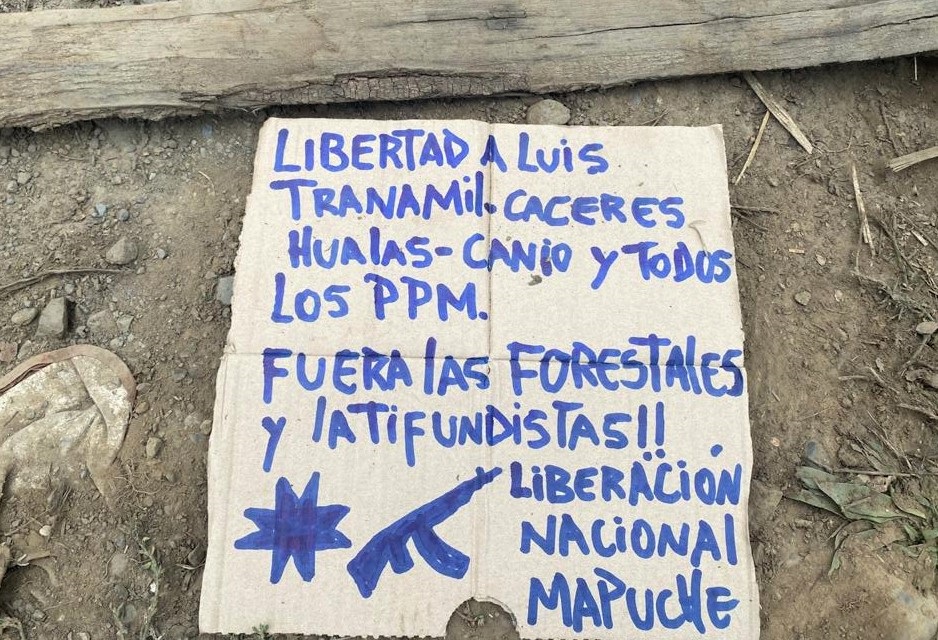 LIBERTAD A LUIS
TRANAMIL. CACERES
HUALAS-CANIO Y TODOS
LOS PPM.
FUERA LAS FORESTALES
Y LATIFUNDISTAS!!
LIBERACIÓN
NACIONAL
MAPUCHE